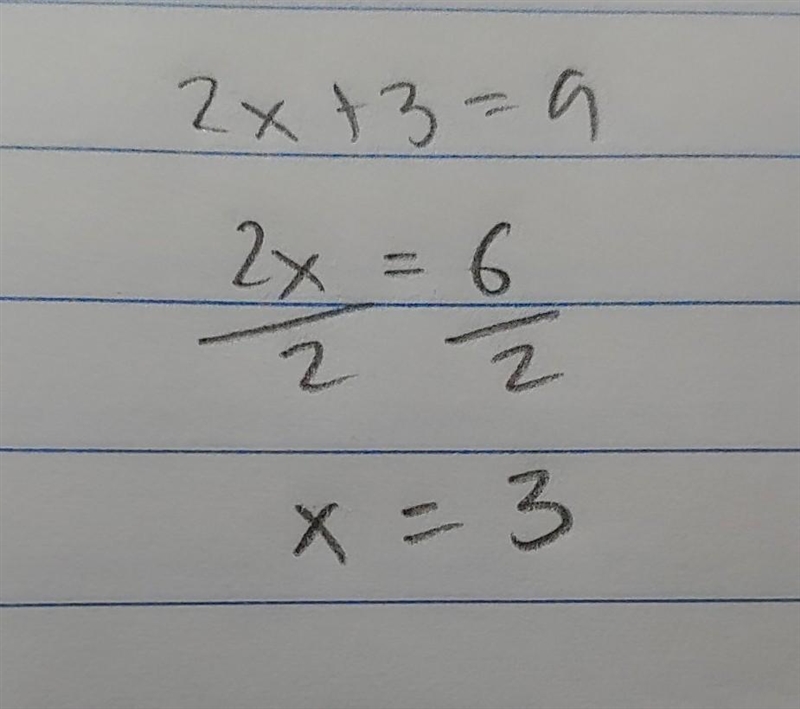 2x + 3 = 9
2x = 6
/2 /2
x = 3